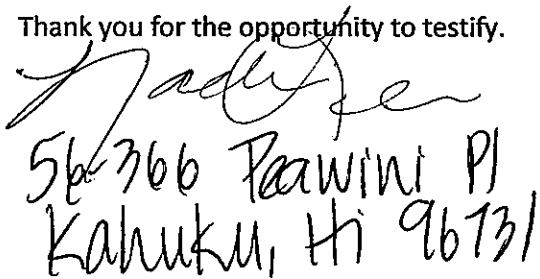 Thank you for the opportunity to testify.
56-366 Paawini Pl
Kahuku, Hi 96731